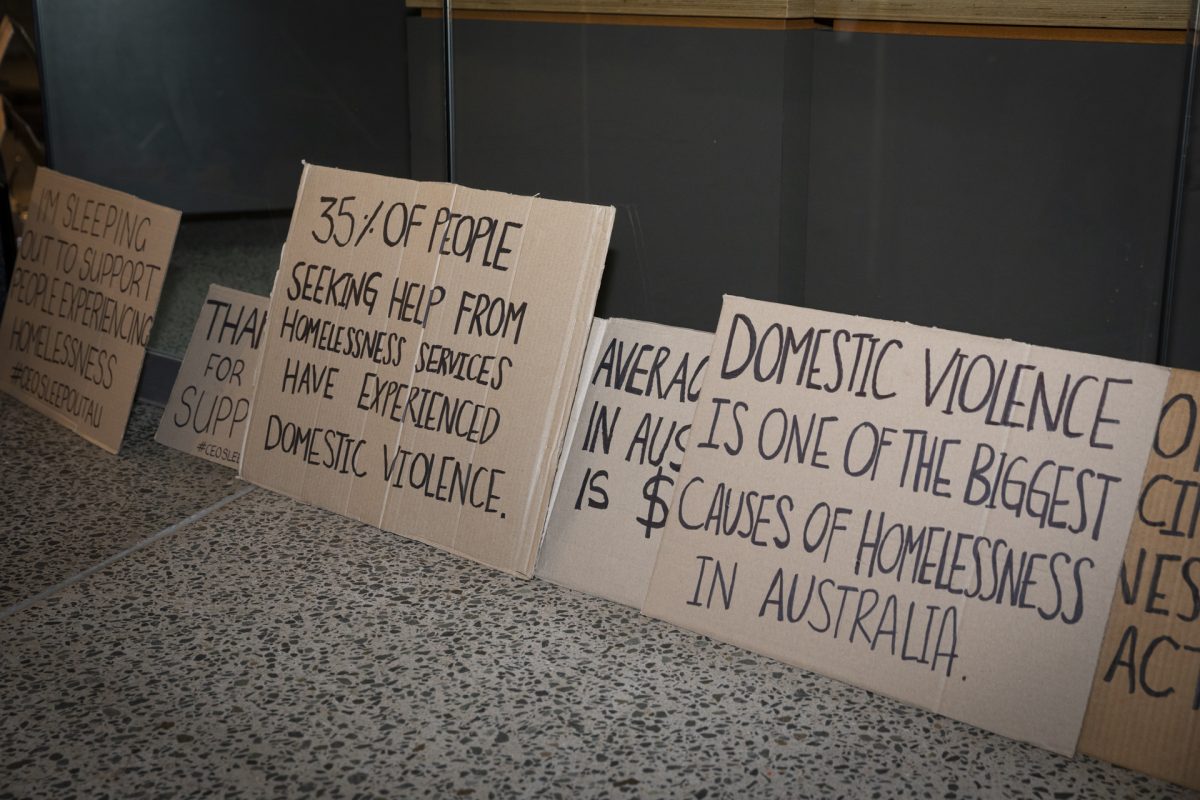 I'M SLEEPING
OUT TO SUPPORT
PEOPLE EXPERIENCING
HOMELESSNESS
#CEOSLEEPOUTAU
THAN
FOR
SUPP
#CEOSLEE
35% OF PEOPLE
SEEKING HELP FROM
HOMELESSNESS SERVICES
HAVE EXPERIENCED
DOMESTIC VIOLENCE.
AVERAG
IN AUS
IS $
DOMESTIC VIOLENCE
IS ONE OF THE BIGGEST
CAUSES OF HOMELESSNESS
IN AUSTRALIA.
NES
ACT